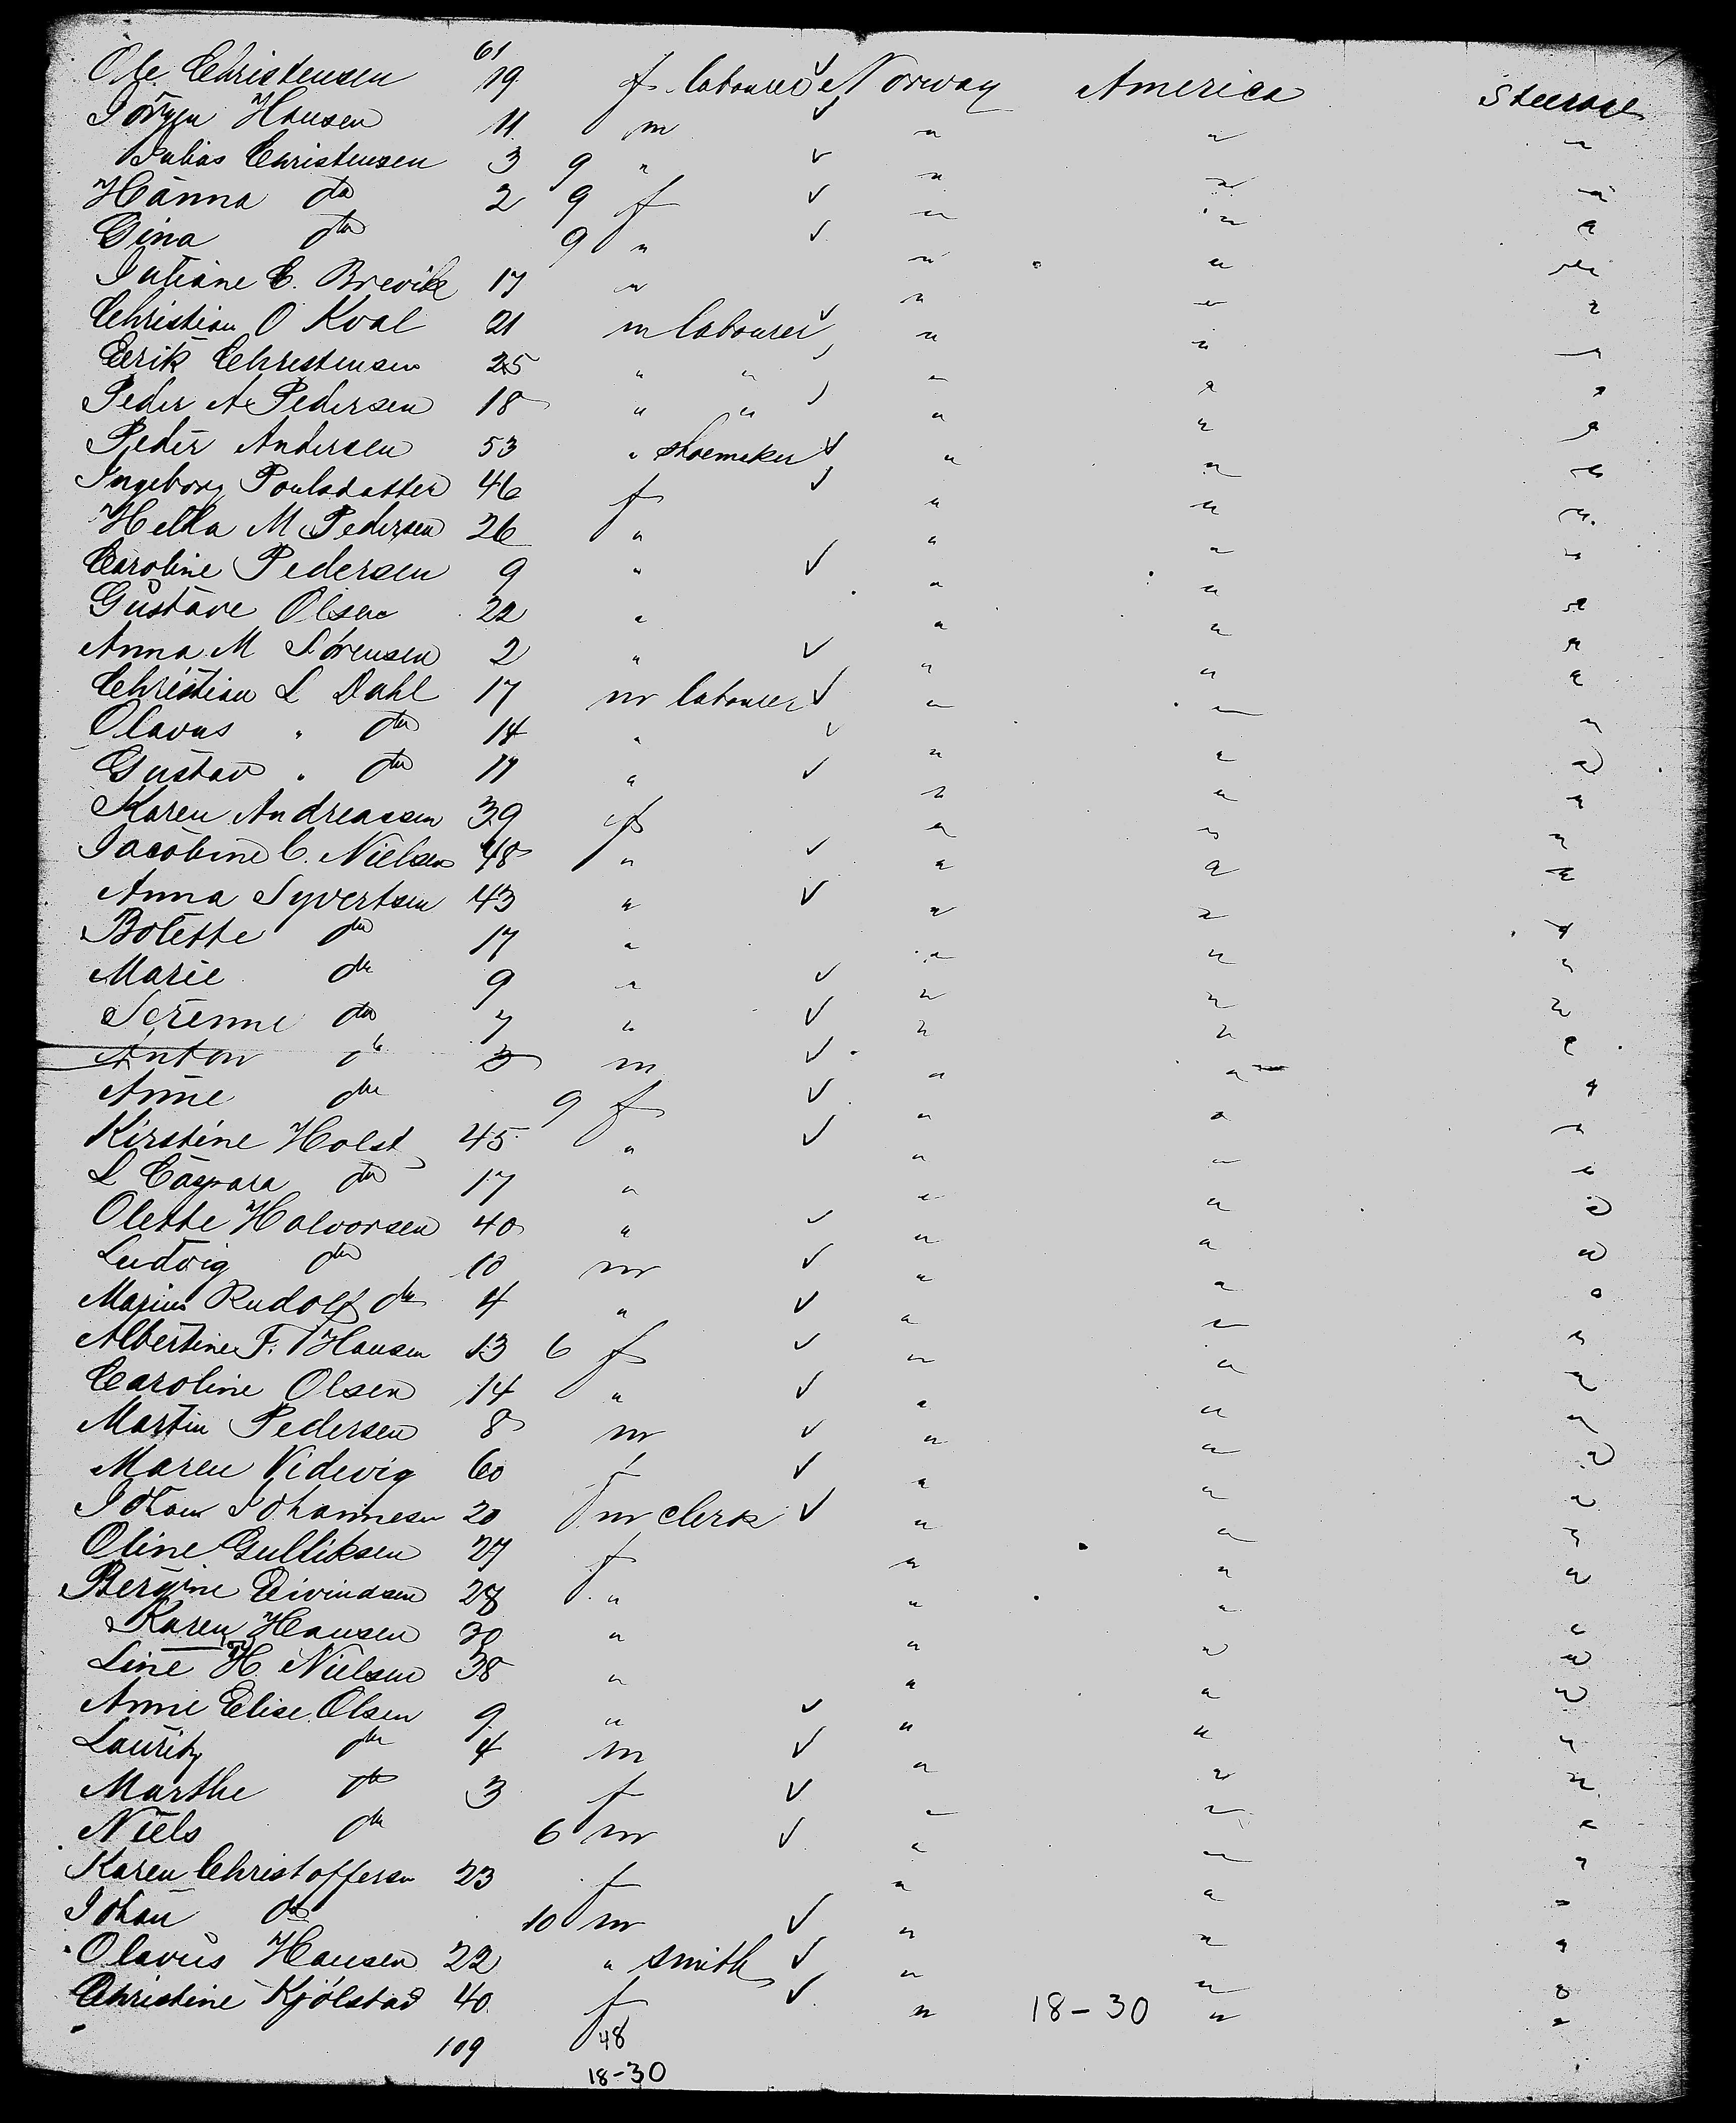 61
Ole Christensen 19 f labourer ✓ Norway America Steerage
Jörgen Hansen 11 m ✓ " " "
Julius Christensen 3 9 " ✓ " " "
Hanna do 2 9 f ✓ " " "
Gina do 9 " ✓ " " "
Juliane C. Brevik 17 " " " "
Christian O Kval 21 m labourer ✓ " " "
Eerik Christensen 25 " " ✓ " " "
Peder A Pedersen 18 " " ✓ " " "
Peder Andersen 53 " shoemaker ✓ " " "
Ingeborg Poulsdatter 46 f ✓ " " "
Helka M Pedersen 26 " " " "
Caroline Pedersen 9 " ✓ " " "
Gustave Olsen 22 " " " "
Anna M Sörensen 2 " ✓ " " "
Christian L Dahl 17 m labourer ✓ " " "
Olavus " do 14 " ✓ " " "
Gustav " do 11 " ✓ " " "
Karen Andreassen 39 f " " "
Jacobine C. Nielsen 48 " ✓ " " "
Anna Syvertsen 43 " ✓ " " "
Bolette do 17 " " " "
Marie do 9 " ✓ " " "
Serenne do 7 " ✓ " " "
Anton do 3 m ✓ " " "
Anne do 9 f ✓ " " "
Kirstine Holst 45 " ✓ " " "
L Caspara do 17 " " " "
Olette Halvorsen 40 " ✓ " " "
Ludvig do 10 m ✓ " " "
Marius Rudolf do 4 " ✓ " " "
Albertine F. Hansen 13 6 f ✓ " " "
Caroline Olsen 14 " ✓ " " "
Martin Pedersen 8 m ✓ " " "
Maren Videvig 60 f ✓ " " "
Johan Johannesen 20 m clerk ✓ " " "
Oline Gulliksen 27 f " " "
Bergine Eivindsen 28 " " " "
Karen Hansen 30 " " " "
Line H. Nielsen 38 " " " "
Anne Elise Olsen 9 " ✓ " " "
Lauritz do 4 m ✓ " " "
Marthe do 3 f ✓ " " "
Niels do 6 m ✓ " " "
Karen Christoffersen 23 f " " "
Johan do 10 m ✓ " " "
Olavus Hansen 22 " smith ✓ " " "
Christine Kjölstad 40 f ✓ " 18-30 " "
109 48
18-30